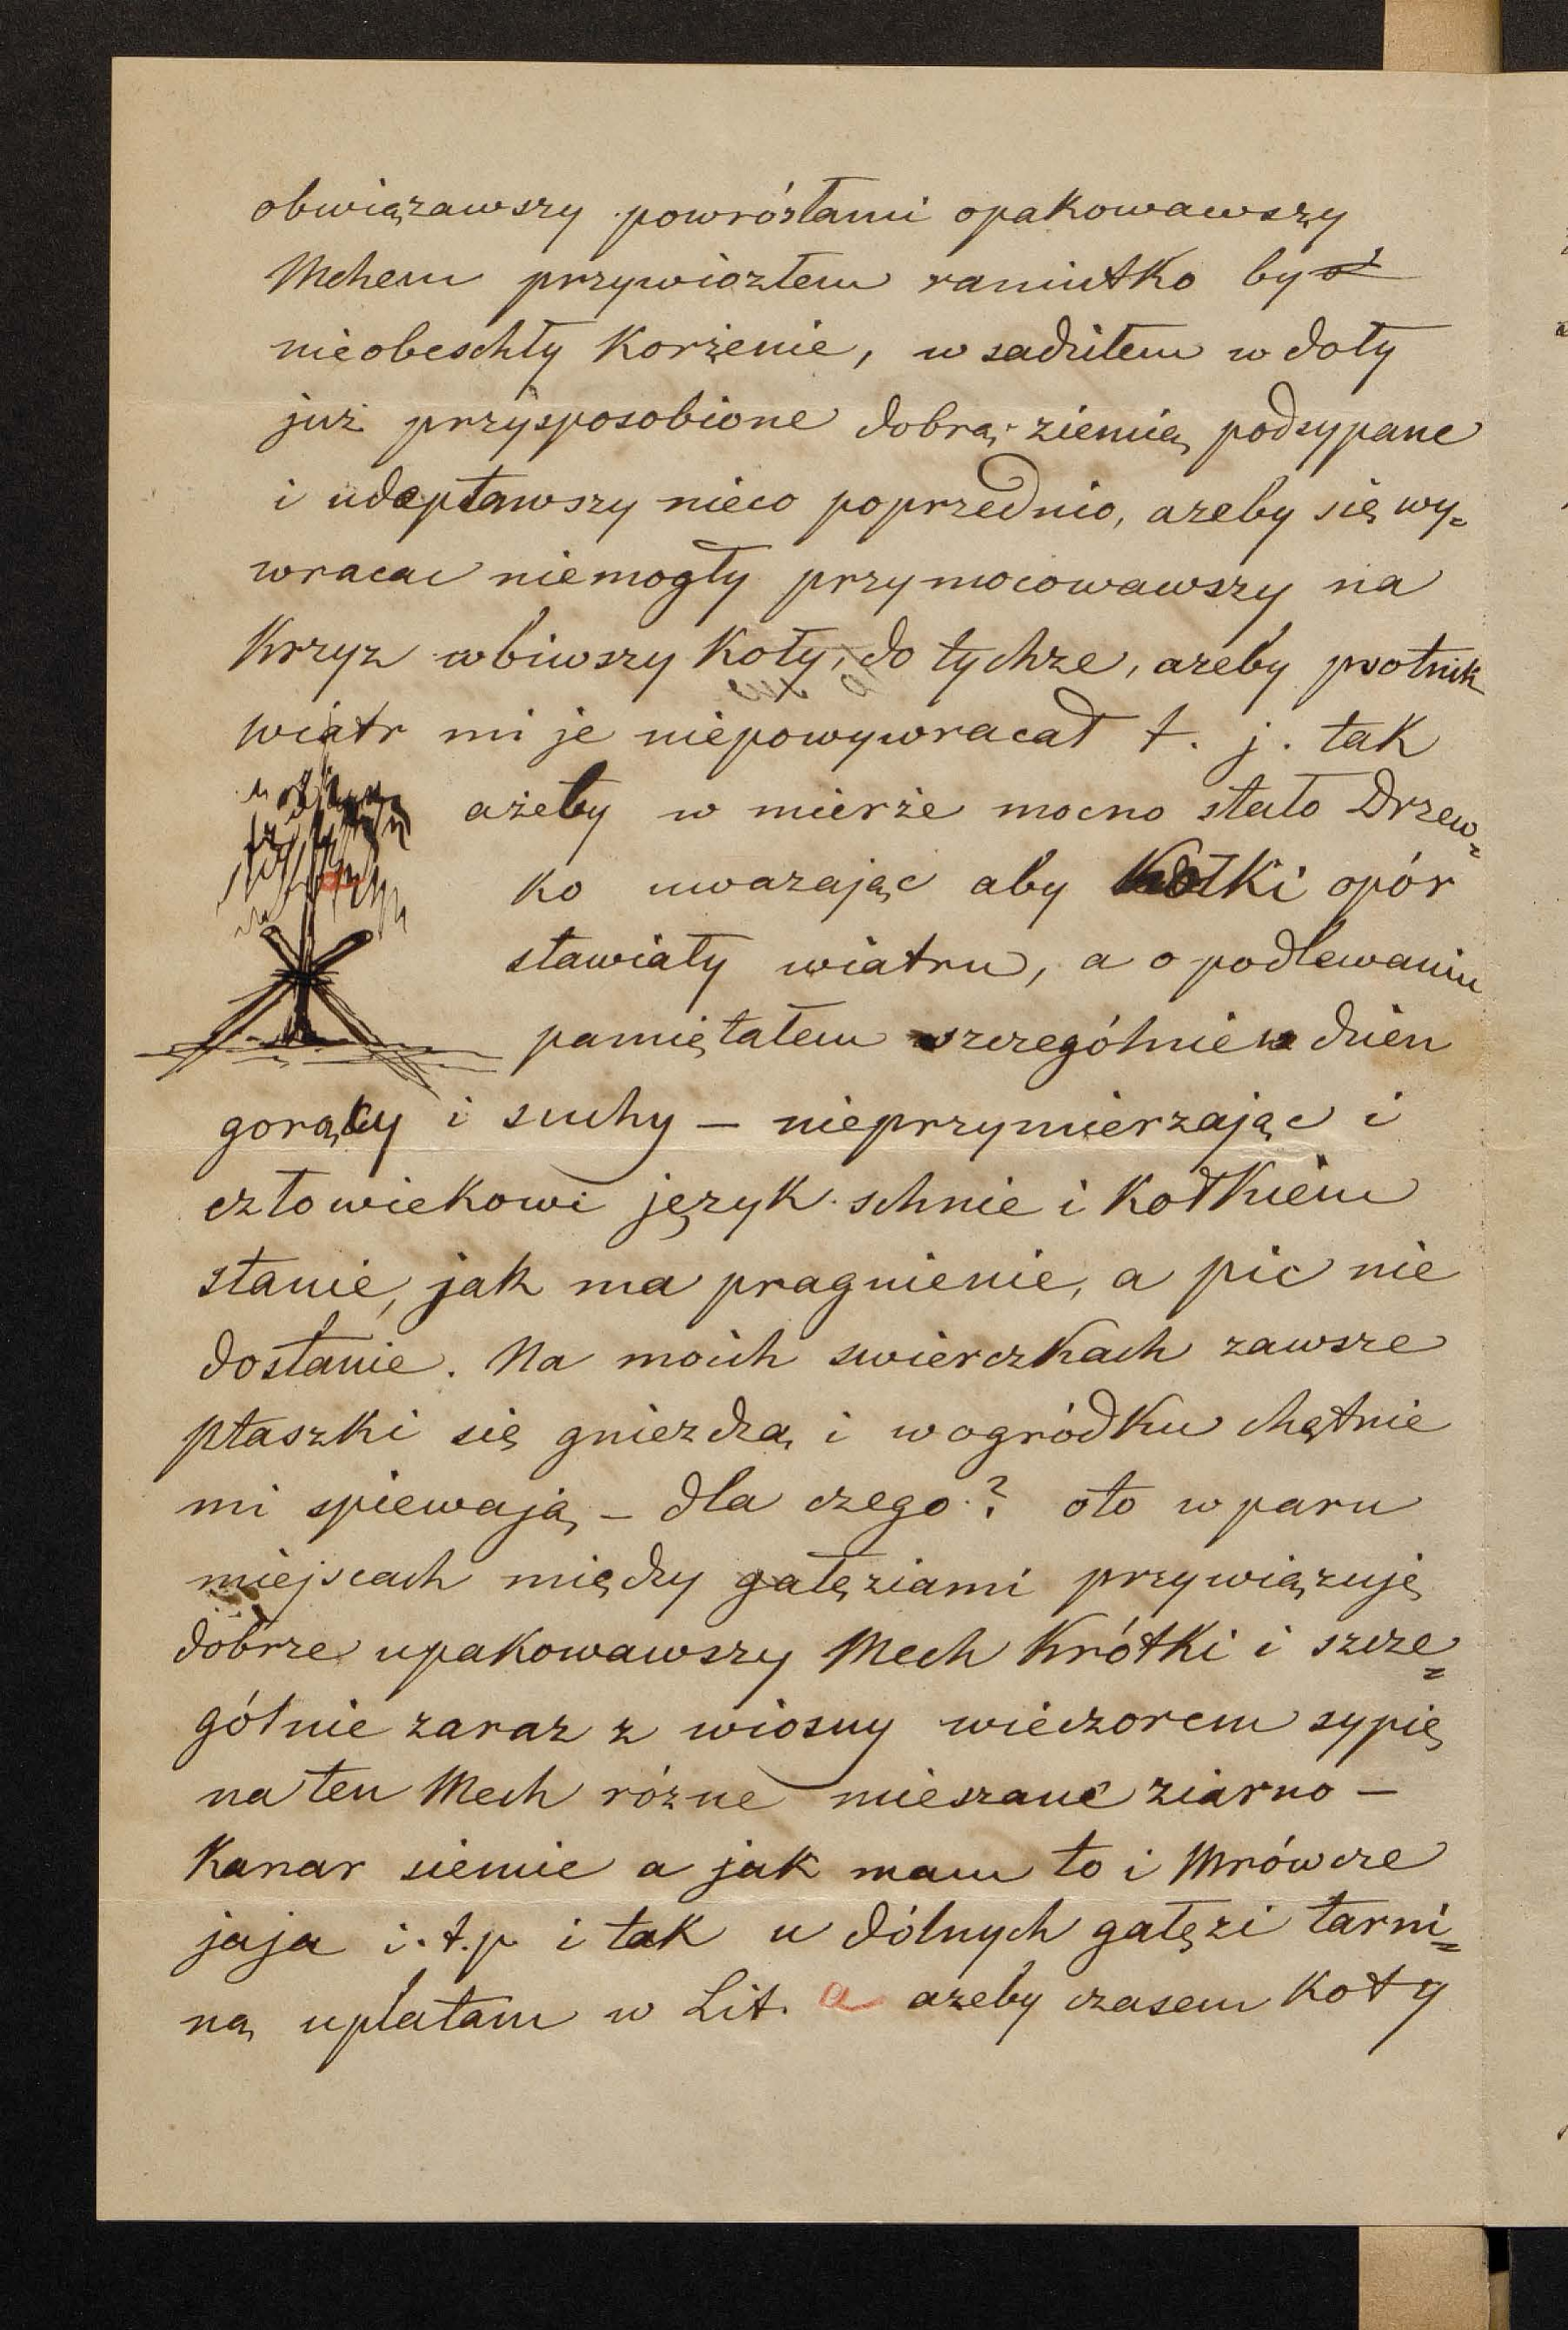 obwiązawszy powrózłami opakowawszy
Mchem przywiozłem raniutko by
nieobeschły Korzenie, w sadziłem w doły
już przysposobione dobrą ziemią podsypane
i udeptawszy nieco poprzednio, azeby się wy=
wracac niemogły przymocowawszy na
Krzyz wbiwszy Koły, do tychze, azeby psotnik
wiatr mi je niepowywracał t. j. tak
ażeby w mierze mocno stało Drzew=
ko uwazając aby Kołki opór
stawiały wiatru, a o podlewaniu
pamiętałem szczególnie w dzien
gorący i suchy – nieprzymierzając i
człowiekowi język schnie i Kołkiem
stanie, jak ma pragnienie, a pic nie
dostanie. Na moich swierczkach zawsze
ptaszki się gniezdzą i w ogródku chętnie
mi spiewają – dla czego? oto w paru
miejscach między gałęziami przywiązuję
dobrze upakowawszy Mech Krótki i szcze=
gólnie zaraz z wiosny wieczorem sypię
na ten Mech rózne mieszane ziarno –
Kanar siemie a jak mam to i Mrówcze
jaja i.t.p i tak u dólnych gałęzi tarni=
ną uplatam w Lit. a azeby czasem Koty